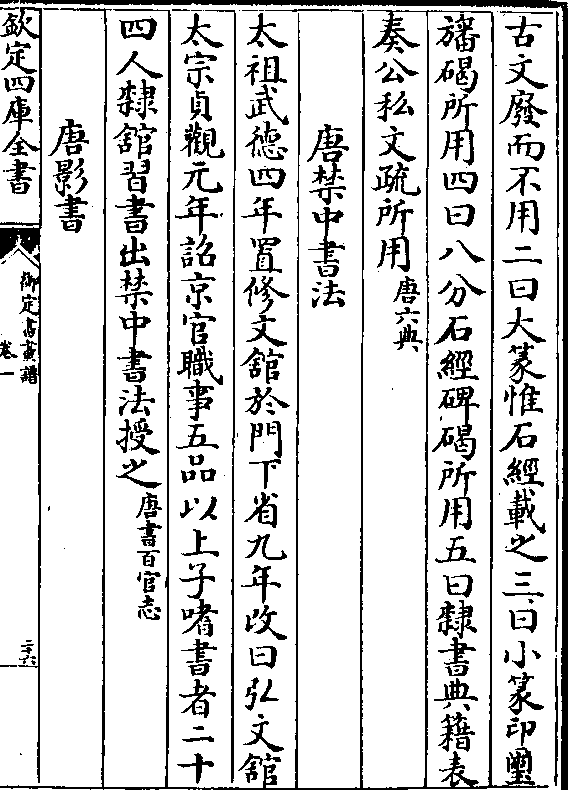 古文廢而不用二曰大篆惟石經載之三曰小篆印璽
旛碣所用四曰八分石經碑碣所用五曰隸書典籍表
奏公私文疏所用唐六典
唐禁中書法
太祖武德四年置修文舘於門下省九年改曰弘文舘
太宗貞觀元年詔京官職事五品以上子嗜書者二十
四人隸舘習書出禁中書法授之唐書百官志
唐影書
欽定四庫全書
御定書畫譜
卷一
二十六